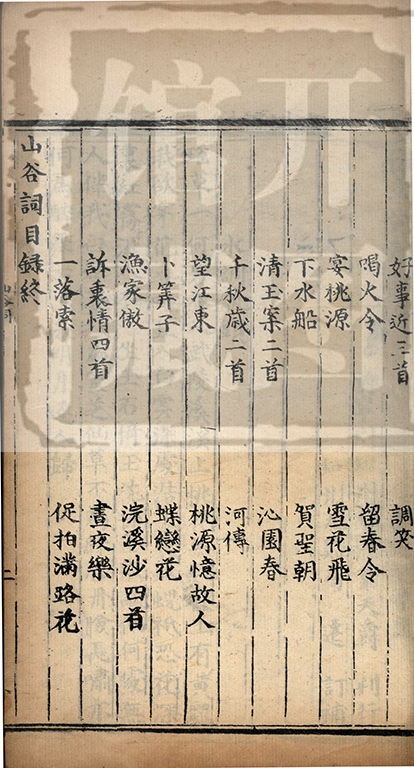 好事近三首 調笑
喝火令 留春令
宴桃源 雪花飛
下水船 賀聖朝
清玉案二首 沁園春
千秋歲二首 河傳
望江東 桃源憶故人
卜筭子 蝶戀花
漁家傲 浣溪沙四首
訴衷情四首 晝夜樂
一落索 促拍滿路花
山谷詞目録終
山谷詞
二